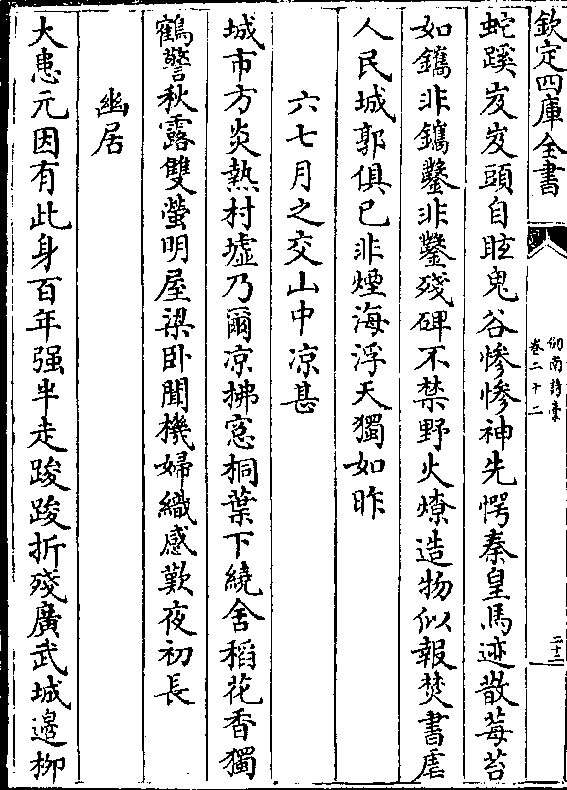 欽定四庫全書
劎南詩稾
卷二十二
二十二
蛇蹊岌岌頭自眩鬼谷慘慘神先愕秦皇馬迹散莓苔
如鐫非鐫鑿非鑿殘碑不禁野火燎造物似報焚書虐
人民城郭俱已非煙海浮天獨如昨
六七月之交山中凉甚
城市方炎熱村墟乃爾凉拂窓桐葉下繞舍稻花香獨
鶴警秋露雙螢明屋梁卧聞機婦織感歎夜初長
幽居
大患元因有此身百年强半走踆踆折殘廣武城邉栁